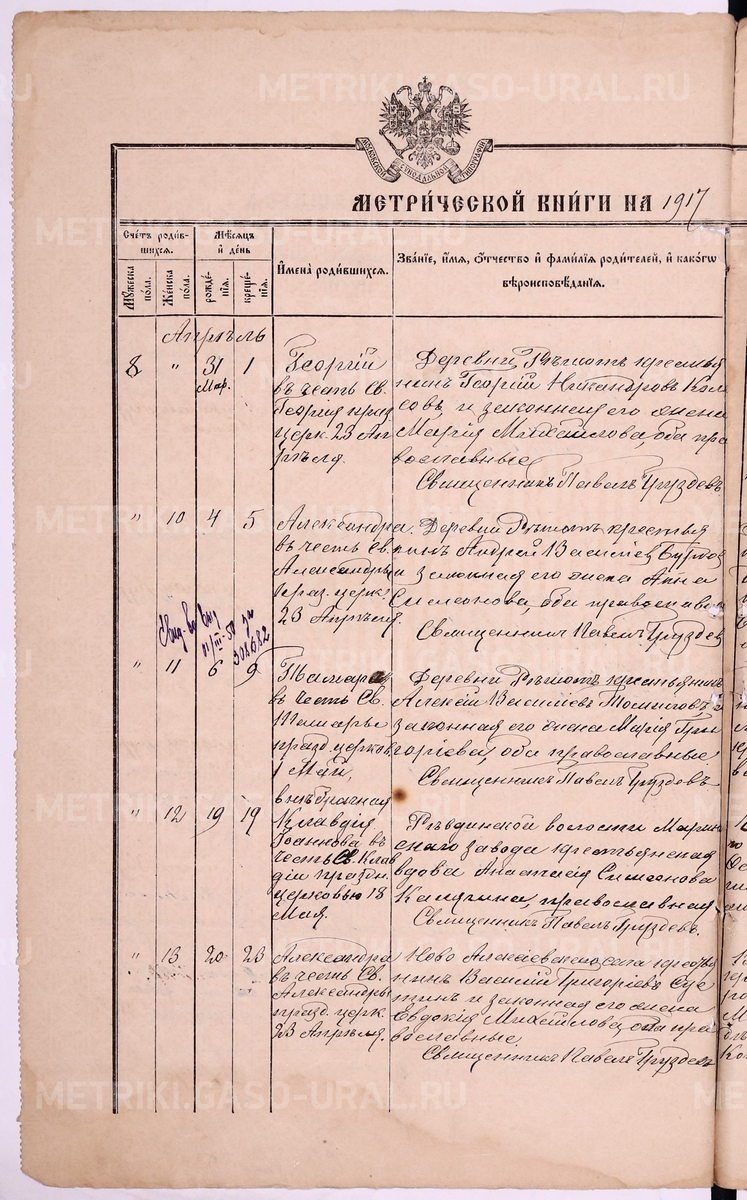 METRIKI.GASO-URAL.RU
МОСКОВСКОЙ СѴНОДАЛЬНОЙ ТИПОГРАФІИ
МЕТРИ́ЧЕСКОЙ КНИ́ГИ НА 1917
Счетъ роди́в-
шихся.
Мѣсяцъ
и день
Мꙋжеска пола.
Женска пола.
рожде́нїя.
креще́нїя.
И҆мена̀ роди́вшихся.
Зва́нїе, и҆́мя, ѻ҆́тчество и҆ фами́лїя роди́телей, и҆ како́гѡ
вѣроисповѣ́данїя.
Апрѣль
8 " 31 Мар. 1
Георгій
въ честь Св.
Георгія праз
церк. 23 Ап
рѣля.
Деревни крестья
нинъ Георгій Никандровъ Кол
совъ, и законная его жена
Марія Михаилова, оба пра
вославные
Священникъ Павелъ Груздевъ
" 10 4 5
Александра
въ честь Св.
Александры
праз. церк.
23 Апрѣля.
Деревни крестья
нинъ Андрей Василіевъ
и законная его жена Анна
Симеонова, оба православн
Священникъ Павелъ Груздевъ
11/III-58
308682
" 11 6 9
Тамара
въ честь Св.
Тамары
празд. церков.
1 Май,
Деревни крестьянинъ
Алексій Василіевъ Томиловъ и
законная его жена Марія Гри
горіева, оба православные
Священникъ Павелъ Груздевъ
" 12 19 19
внѣбрачная
Клавдія
Іоаннова въ
честь Св. Клав
діи праздн.
церковью 18
Мая.
Ревдинской волости Марин
скаго завода крестьянская
вдова Анастасія Симеонова
Калягина, православная
Священникъ Павелъ Груздевъ.
" 13 20 23
Александра
въ честь Св.
Александры
празд. церк.
23 Апрѣля.
Ново Алексѣевскаго села крестья
нинъ Василій Григоріевъ
и законная его жена
Евдокія Михаилова, оба пра
вославные.
Священникъ Павелъ Груздевъ